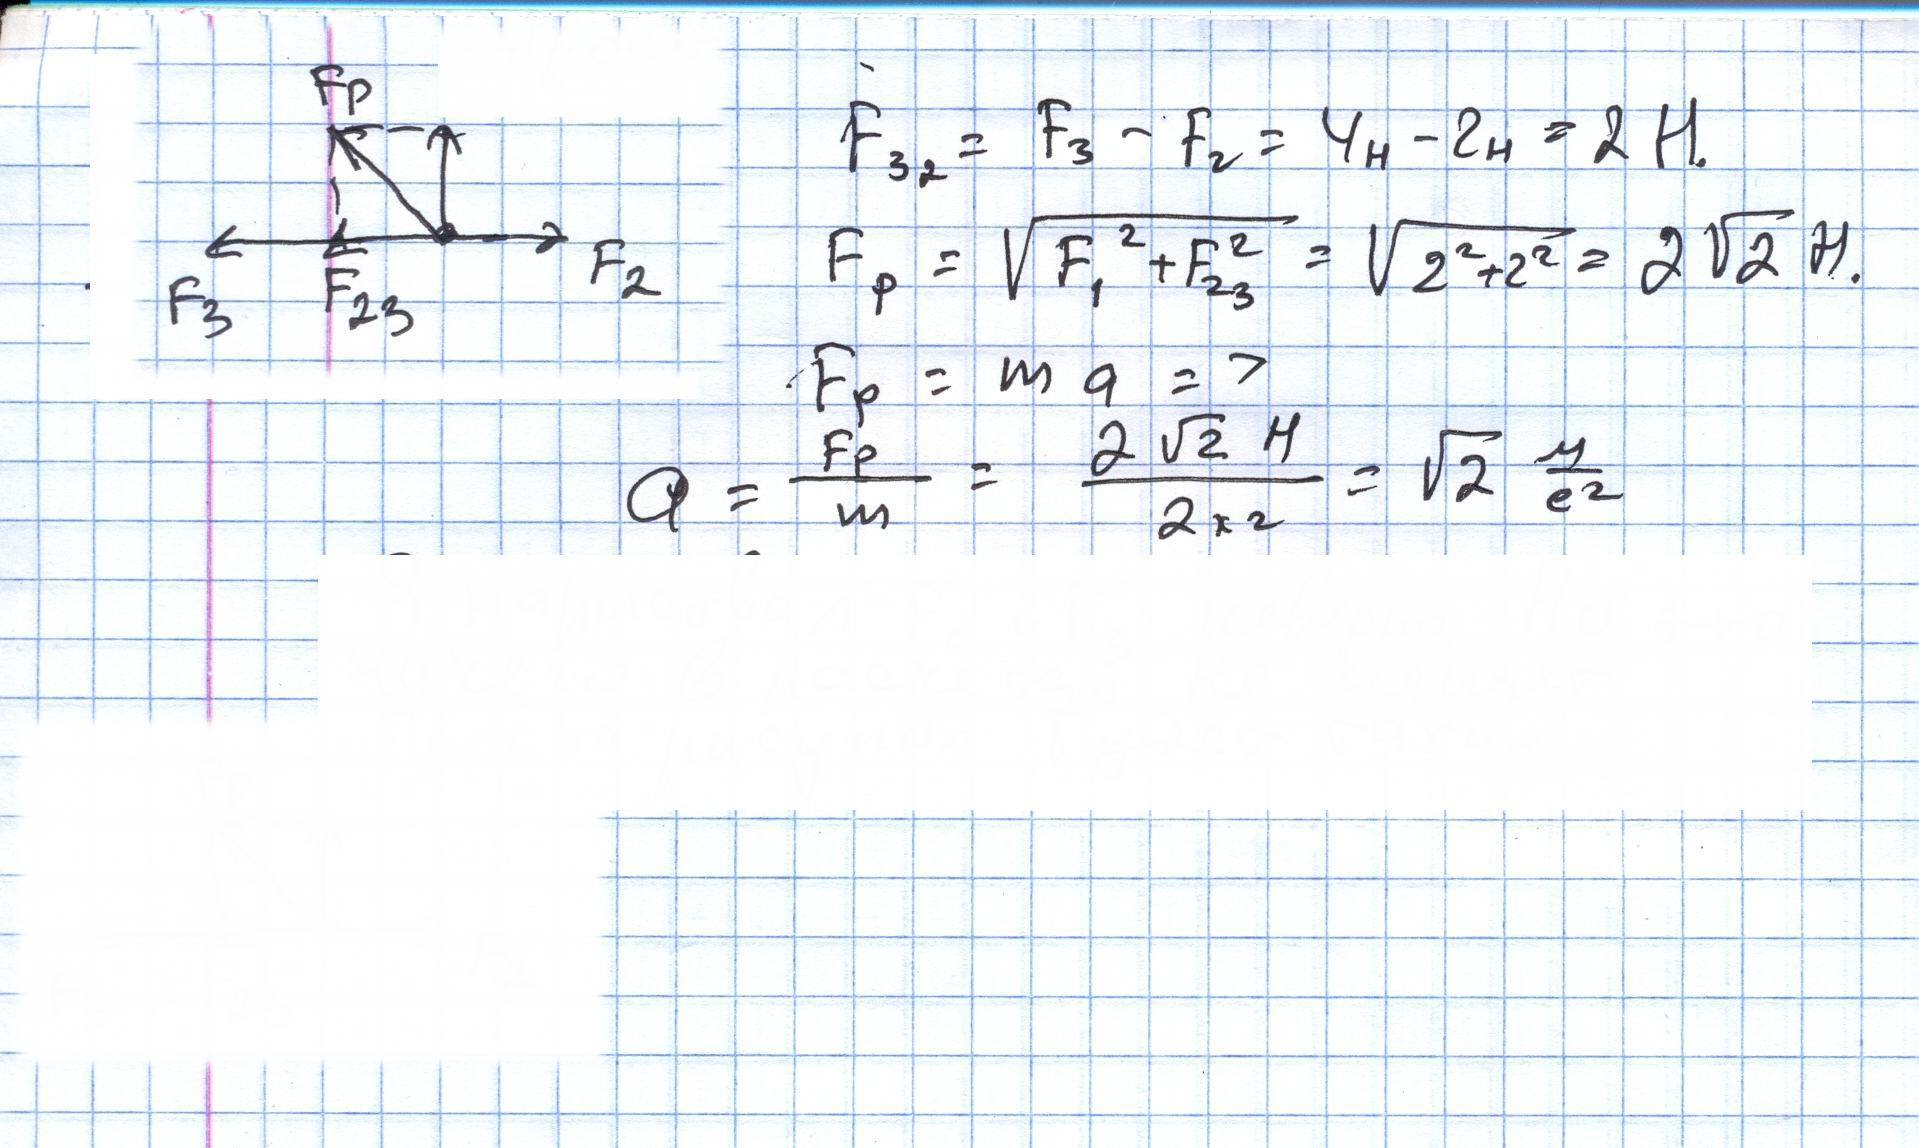 Fp
F3 F23 F2
F32 = F3 - F2 = 4н - 2н = 2 Н.
Fp = √(F1² + F23²) = √(2²+2²) = 2√2 Н.
Fp = ma =>
a = Fp/m = 2√2 Н / 2кг = √2 м/с²